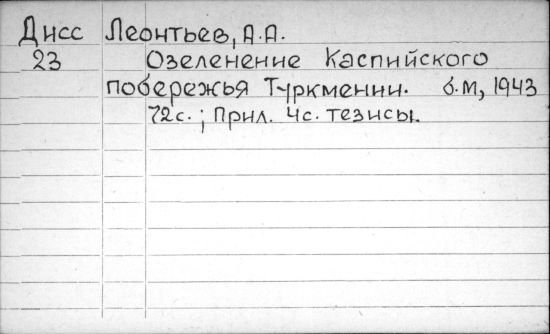 Дисс Леонтьев, А.А.
23 Озеленение Каспийского
побережья Туркмении. б.м, 1943
72с.; Прил. 4с. тезисы.